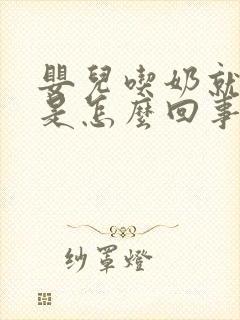 嬰兒喫奶就
是怎麼回事
紗罩燈